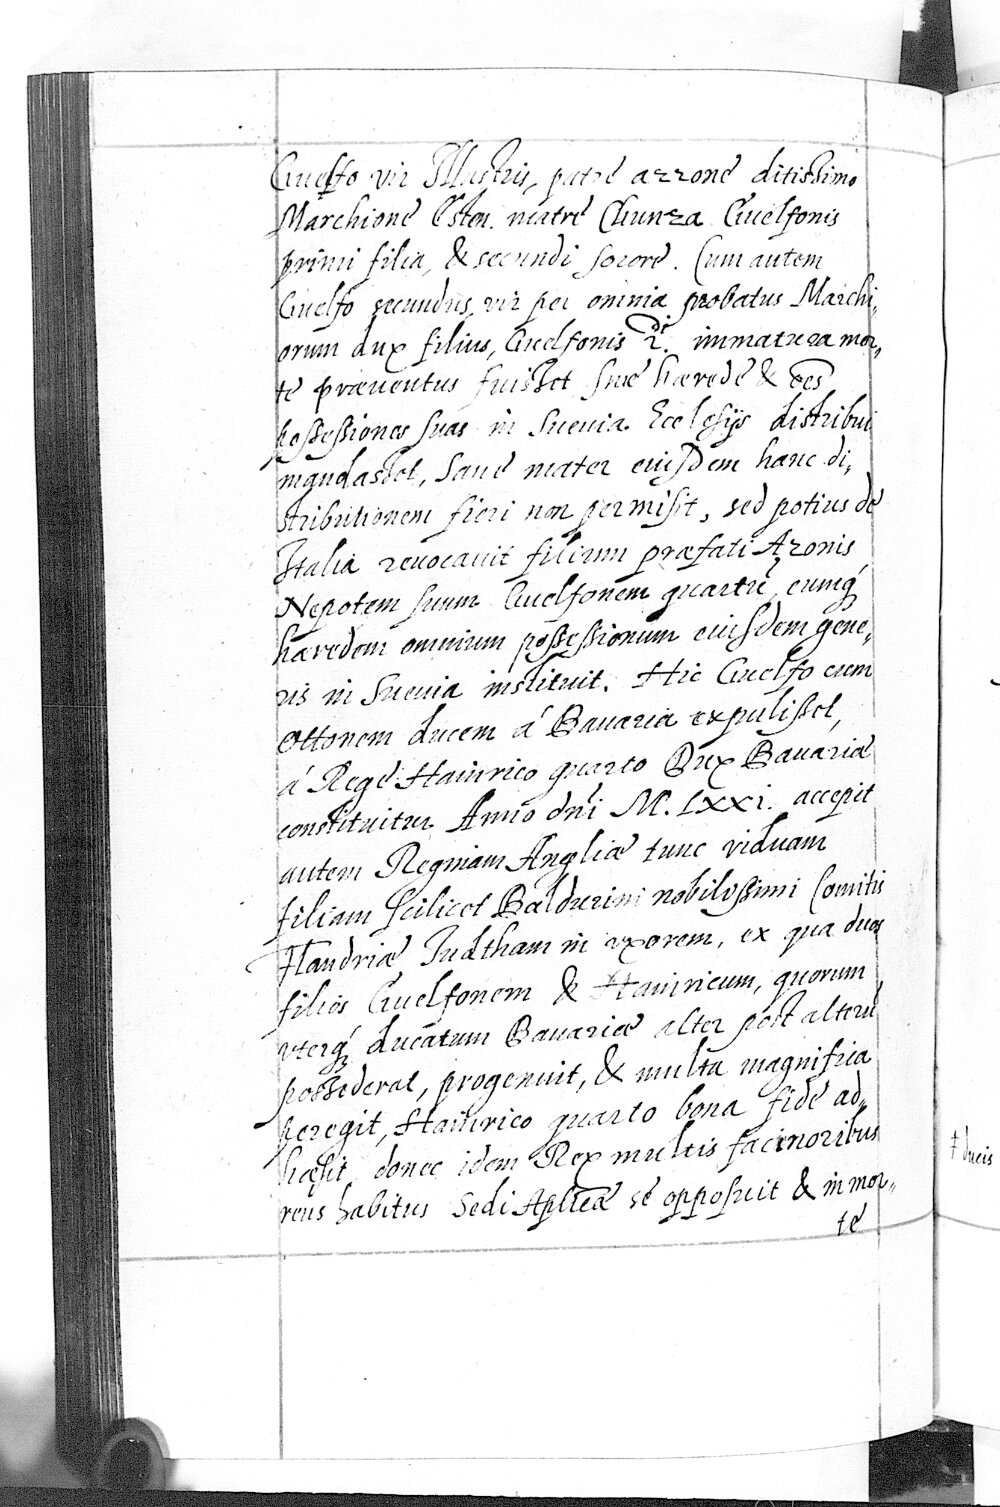 Guelfo vir Illustris, patré azzoné ditissimo
Marchioné Esten. matré Chunza Guelfonis
primi filia, & secundi sororé. Cum autem
Guelfo secundus, vir per omnia probatus Marchi„
orum dux filius, Guelfonis 2.di immatura mor„
té præventus fuisset siné hæredé & oēs
possessiones suas in Sueuia Ecclesijs distribui
mandasset, sané mater eiusdem hanc di„
stributionem fieri non permisit, sed potius dé
Italia reuocauit filium præfati Azonis
Nepotem suum Guelfonem quartū, eumq́
hæredem omnium possessionum eiusdem gene„
ris in Sueuia instituit. Hic Guelfo cum
Ottonem ducem á Bauaria expulisset,
á Regé Hainrico quarto Dux Bauariæ
constituitur Anno dn̄i M. LXXI. accepit
autem Reginam Angliæ tunc viduam
filiam scilicet Balduuini nobilissimi Comitis
Flandriæ Judtham in vxorem, ex qua duos
filios Guelfonem & Hainricum, quorum
vterq́ ducatum Bauariæ alter post alterū
possederat, progenuit, & multa magnifica
peregit, Hainrico quarto bona fidé ad„
hæsit, donec idem Rex multis facinoribus
reus habitus Sedi Apl̄icæ sé opposuit & in mor„
té
† ducis